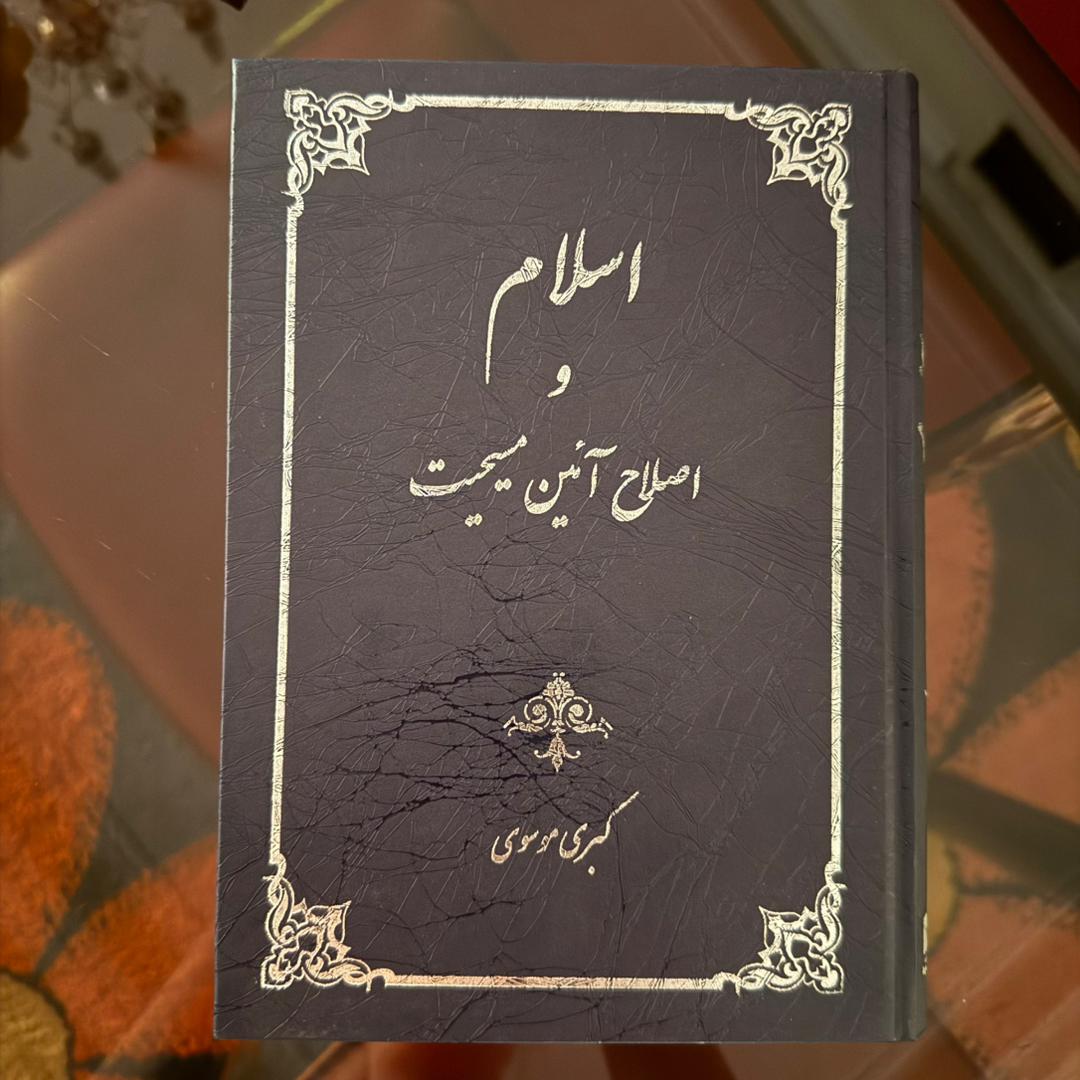 اسلام
و
اصلاح آئین مسیحیت
کبری موسوی